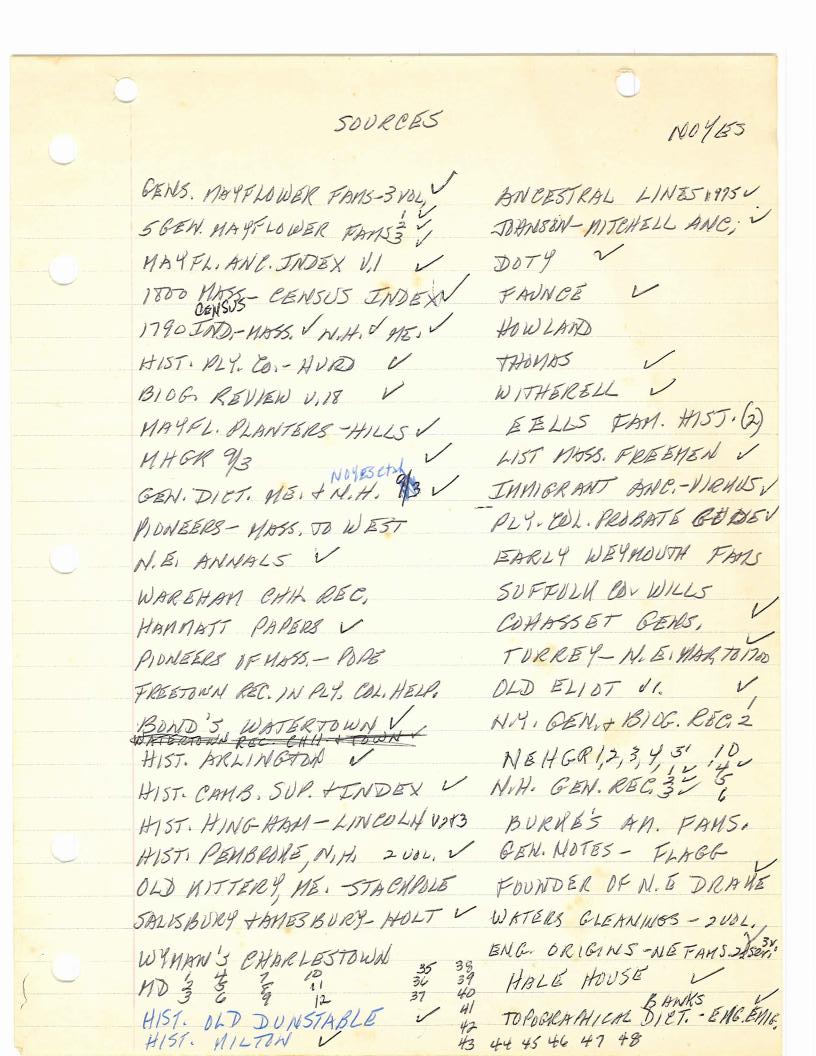 SOURCES
NOYES
GENS. MAYFLOWER FAMS-3 VOL. ✓
5 GEN. MAYFLOWER FAMS 1 ✓ 2 ✓ 3 ✓
MAYFL. ANC. INDEX V.1 ✓
1800 MASS- CENSUS INDEX ✓
CENSUS
1790 IND.-MASS. ✓ N.H. ✓ ME. ✓
HIST. PLY. CO.- HURD ✓
BIOG. REVIEW V.18 ✓
MAYFL. PLANTERS -HILLS ✓
MHGR 9/3 ✓
NOYES
GEN. DICT. ME. + N.H. 9/3 ✓
PIONEERS- MASS. TO WEST
N.E. ANNALS ✓
WAREHAM CHH. REC.
HAMMATT PAPERS ✓
PIONEERS OF MASS.- POPE
FREETOWN REC. IN PLY. COL. HELP.
BOND'S WATERTOWN ✓
WATERTOWN REC. CHH + TOWN ✓
HIST. ARLINGTON ✓
HIST. CAMB. SUP. + INDEX ✓
HIST. HINGHAM- LINCOLN V2+3
HIST. PEMBROKE, N.H. 2 VOL. ✓
OLD KITTERY, ME. -STACKPOLE
SALISBURY + AMESBURY- HOLT ✓
WYMAN'S CHARLESTOWN
MD 1 2 3 4 5 6 7 8 9 10 11 12 35 36 37 38 39 40 41 42 43 44 45 46 47 48
HIST. OLD DUNSTABLE ✓
HIST. MILTON ✓
ANCESTRAL LINES 1975 ✓
JOHNSON- MITCHELL ANC. ✓
DOTY ✓
FAUNCE ✓
HOWLAND
THOMAS ✓
WITHERELL ✓
EELLS FAM. HIST. (2)
LIST MASS. FREEMEN ✓
IMMIGRANT ANC.-VIRKUS ✓
PLY. COL. PROBATE GUIDE ✓
EARLY WEYMOUTH FAMS
SUFFOLK CO. WILLS
COHASSET GENS. ✓
TORREY- N.E. MAR. TO 1700 ✓
OLD ELIOT V1. ✓
N.Y. GEN. + BIOG. REC. 1 2
NEHGR 1, 2, 3, 4, 5, 10
N.H. GEN. REC. 1 ✓ 2 ✓ 3 ✓ 4 ✓ 5 6
BURKE'S AM. FAMS.
GEN. NOTES - FLAGG
FOUNDER OF N.E DRAKE ✓
WATERS GLEANINGS - 2 VOL.
ENG. ORIGINS -NE FAMS. 2d Ser. 3V.
HALE HOUSE ✓
BANKS ✓
TOPOGRAPHICAL DICT. - ENG. EMIG.